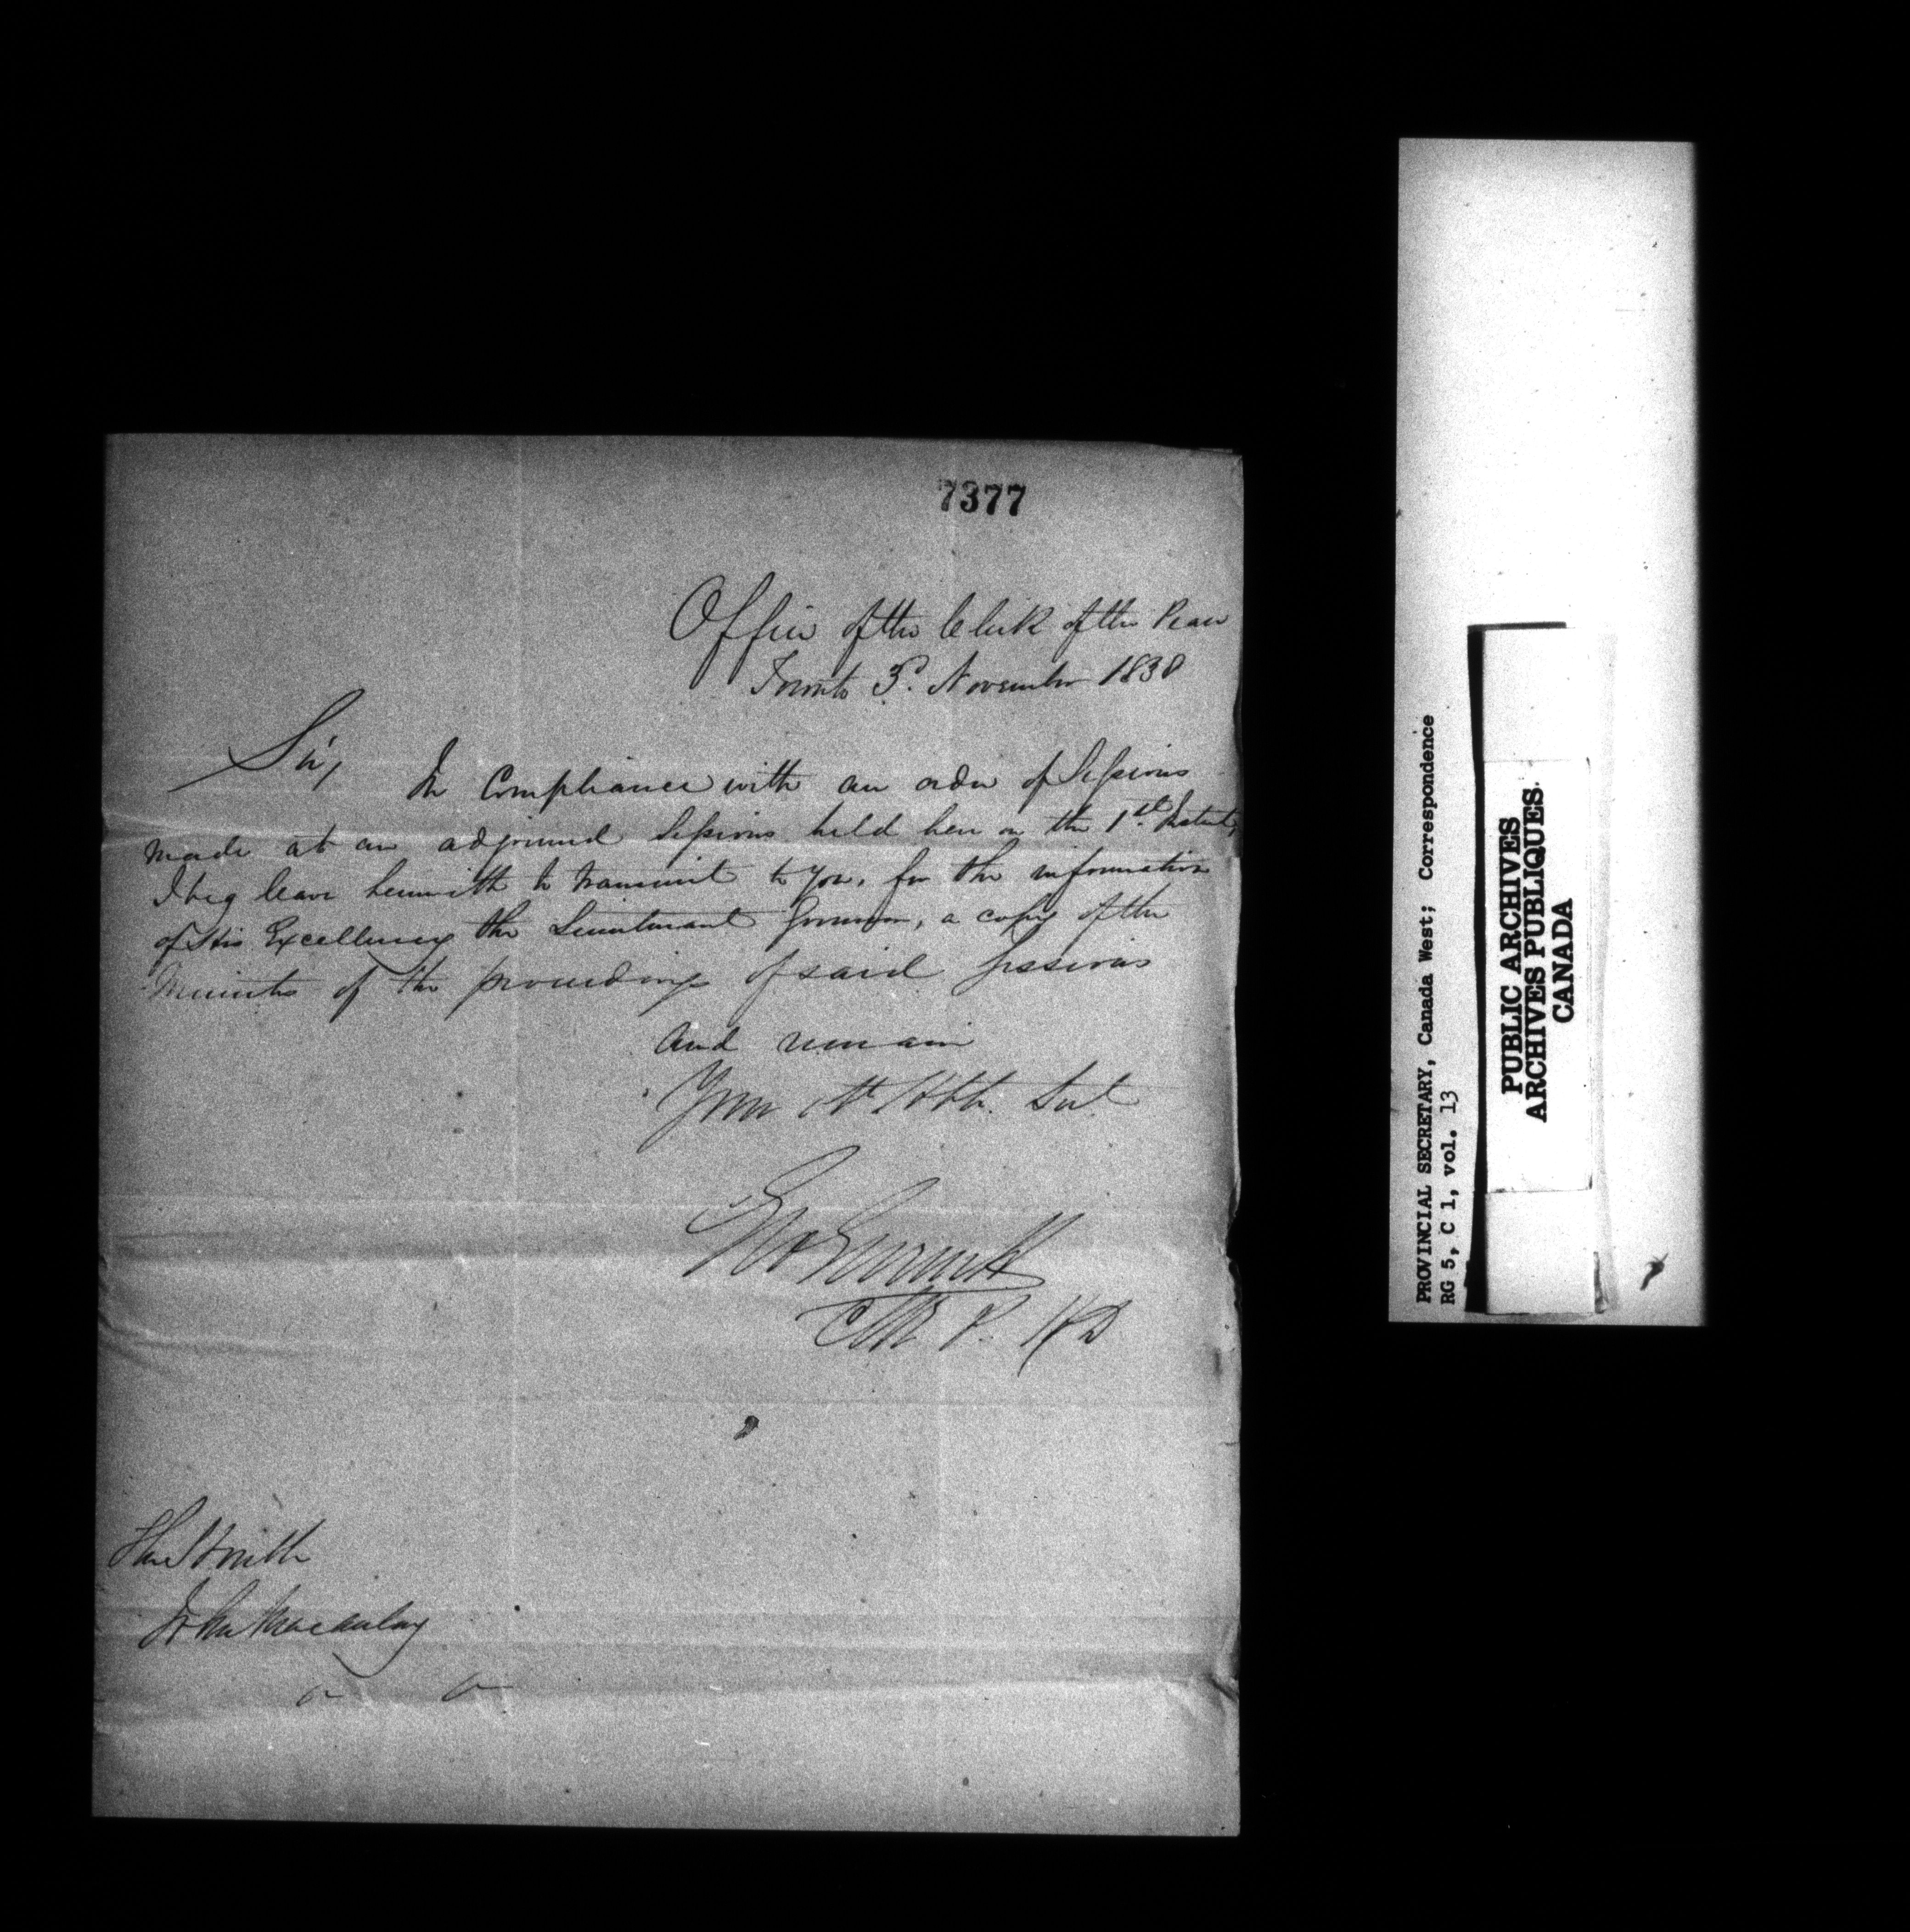 7377
Office of the Clerk of the Peace
Toronto 3d. November 1838
Sir,
In Compliance with an order of Sessions
made at an adjourned Sessions held here on the 1st. Instant,
I beg leave herewith to transmit to you, for the information
of His Excellency the Lieutenant Governor, a copy of the
Minutes of the proceedings of said sessions
and remain
Your Mt Obt. Sert
Geo Gurnett
Clk P. HD
John Macaulay
PROVINCIAL SECRETARY, Canada West; Correspondence
RG 5, C 1, vol. 13
PUBLIC ARCHIVES
ARCHIVES PUBLIQUES
CANADA